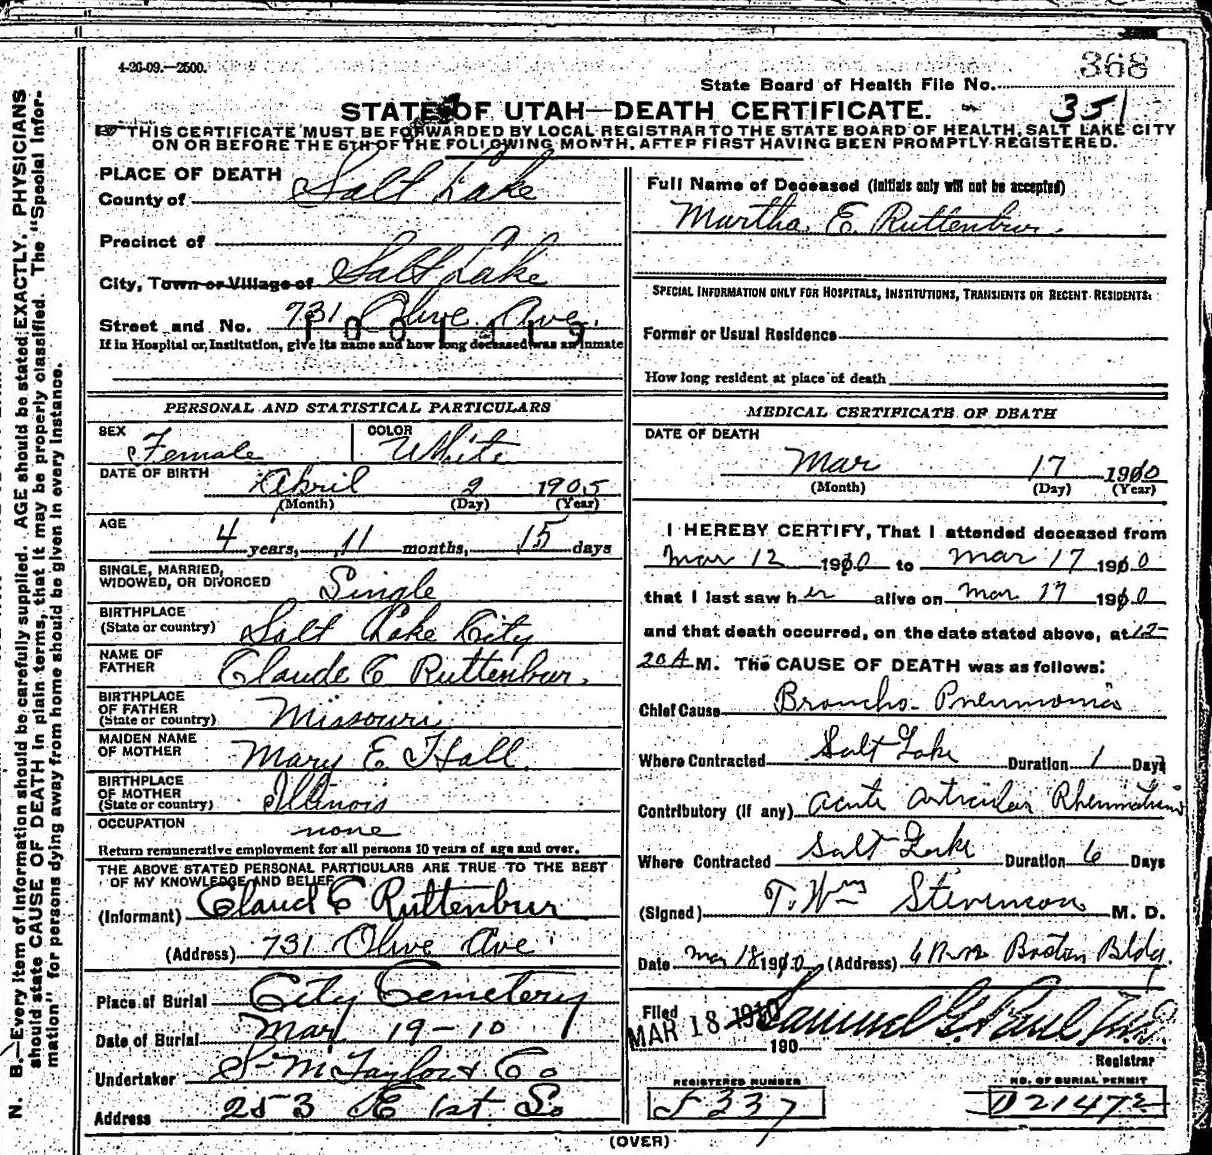 4-26-09.—2500.
368
State Board of Health File No.
351
STATE OF UTAH—DEATH CERTIFICATE.
THIS CERTIFICATE MUST BE FORWARDED BY LOCAL REGISTRAR TO THE STATE BOARD OF HEALTH, SALT LAKE CITY
ON OR BEFORE THE 5TH OF THE FOLLOWING MONTH, AFTER FIRST HAVING BEEN PROMPTLY REGISTERED.
N. B.—Every item of information should be carefully supplied. AGE should be stated EXACTLY. PHYSICIANS
should state CAUSE OF DEATH in plain terms, that it may be properly classified. The "Special Infor-
mation" for persons dying away from home should be given in every instance.
PLACE OF DEATH
County of Salt Lake
Precinct of
City, Town or Village of Salt Lake
Street and No. 731 Olive Ave.
1001419
If in Hospital or Institution, give its name and how long deceased was an inmate
PERSONAL AND STATISTICAL PARTICULARS
SEX Female COLOR White
DATE OF BIRTH April 2 1905
(Month) (Day) (Year)
AGE 4 years, 11 months, 15 days
SINGLE, MARRIED,
WIDOWED, OR DIVORCED Single
BIRTHPLACE
(State or country) Salt Lake City
NAME OF
FATHER Claude C Ruttenbur.
BIRTHPLACE
OF FATHER
(State or country) Missouri
MAIDEN NAME
OF MOTHER Mary E. Hall.
BIRTHPLACE
OF MOTHER
(State or country) Illinois
OCCUPATION none
Return remunerative employment for all persons 10 years of age and over.
THE ABOVE STATED PERSONAL PARTICULARS ARE TRUE TO THE BEST
OF MY KNOWLEDGE AND BELIEF
(Informant) Claud C Ruttenbur
(Address) 731 Olive Ave
Place of Burial City Cemetery
Date of Burial Mar 19-10
Undertaker S M Taylor & Co
Address 253 E 1st So
Full Name of Deceased (Initials only will not be accepted)
Martha. E. Ruttenbur.
SPECIAL INFORMATION ONLY FOR HOSPITALS, INSTITUTIONS, TRANSIENTS OR RECENT RESIDENTS:
Former or Usual Residence
How long resident at place of death
MEDICAL CERTIFICATE OF DEATH
DATE OF DEATH
Mar 17 1910
(Month) (Day) (Year)
I HEREBY CERTIFY, That I attended deceased from
Mar 12 1910 to Mar 17 1910
that I last saw her alive on Mar 17 1910
and that death occurred, on the date stated above, at 12-
20 A M. The CAUSE OF DEATH was as follows:
Chief Cause Broncho-Pneumonia
Where Contracted Salt Lake Duration 1 Days
Contributory (if any) Acute Articular Rheumatism
Where Contracted Salt Lake Duration 6 Days
(Signed) T. Wm Stevenson M. D.
Date Mar 18 1910 (Address) Boston Bldg.
Filed MAR 18 1910 Samuel G. Paul M.D.
190
Registrar
REGISTERED NUMBER
NO. OF BURIAL PERMIT
J 337
D21472
(OVER)